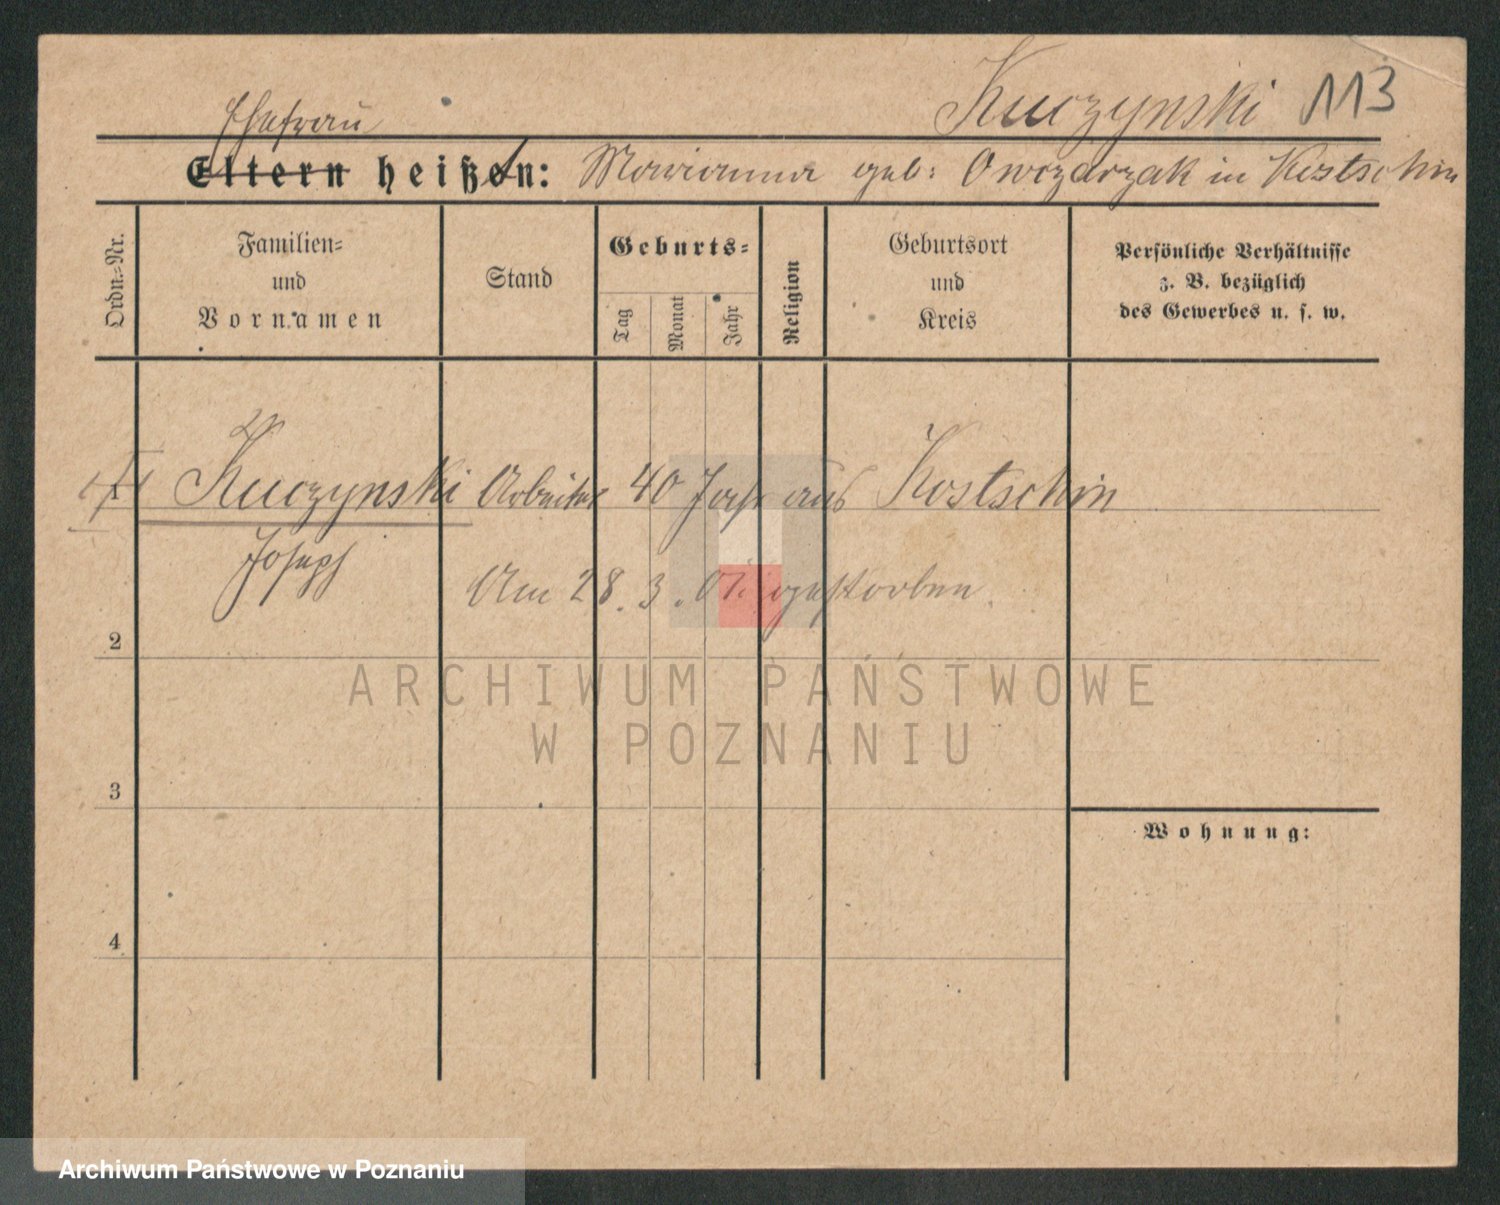 Kuczynski 113
Ehefrau
Eltern heißen: Marianna geb: Owczarzak in Kostschin
Ordn.-Nr.
Familien-
und
Vornamen
Stand
Geburts-
Tag
Monat
Jahr
Religion
Geburtsort
und
Kreis
Persönliche Verhältnisse
z. B. bezüglich
des Gewerbes u. s. w.
1 Kuczynski Arbeiter 40 Jahr aus Kostschin
Joseph
Am 28.3. 07. gestorben.
2
ARCHIWUM PAŃSTWOWE
W POZNANIU
3
Wohnung:
4
Archiwum Państwowe w Poznaniu